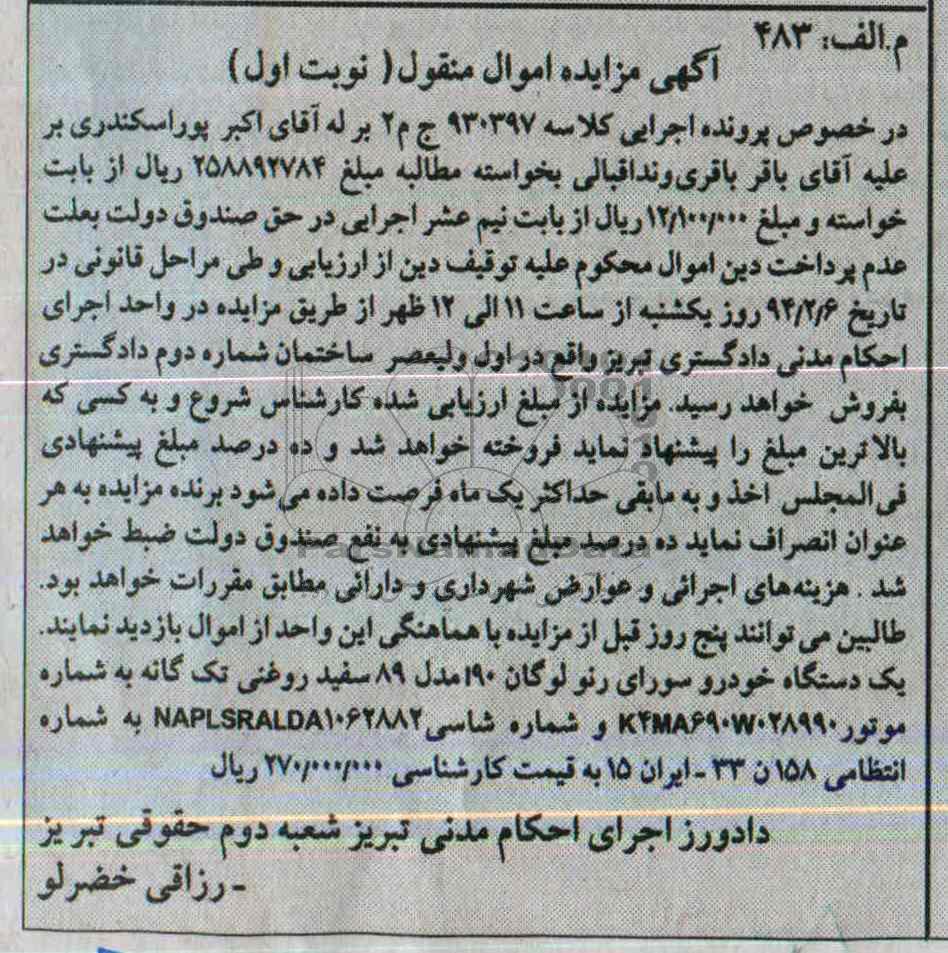 م.الف: ۴۸۳
آگهی مزایده اموال منقول( نوبت اول)
در خصوص پرونده اجرایی کلاسه ۹۳۰۳۹۷ ج م۲ بر له آقای اکبر پوراسکندری بر
علیه آقای باقر باقری‌ونداقبالی بخواسته مطالبه مبلغ ۲۵۸۸۹۲۷۸۴ ریال از بابت
خواسته و مبلغ ۱۲/۱۰۰/۰۰۰ ریال از بابت نیم عشر اجرایی در حق صندوق دولت بعلت
عدم پرداخت دین اموال محکوم علیه توقیف دین از ارزیابی و طی مراحل قانونی در
تاریخ ۹۴/۲/۶ روز یکشنبه از ساعت ۱۱ الی ۱۲ ظهر از طریق مزایده در واحد اجرای
احکام مدنی دادگستری تبریز واقع در اول ولیعصر ساختمان شماره دوم دادگستری
بفروش خواهد رسید. مزایده از مبلغ ارزیابی شده کارشناس شروع و به کسی که
بالاترین مبلغ را پیشنهاد نماید فروخته خواهد شد و ده درصد مبلغ پیشنهادی
فی‌المجلس اخذ و به مابقی حداکثر یک ماه فرصت داده می‌شود برنده مزایده به هر
عنوان انصراف نماید ده درصد مبلغ پیشنهادی به نفع صندوق دولت ضبط خواهد
شد . هزینه‌های اجرائی و عوارض شهرداری و دارائی مطابق مقررات خواهد بود.
طالبین می‌توانند پنج روز قبل از مزایده با هماهنگی این واحد از اموال بازدید نمایند.
یک دستگاه خودرو سورای رنو لوگان ۱۹۰ مدل ۸۹ سفید روغنی تک گانه به شماره
موتور K۴MA۶۹۰W۰۲۸۹۹۰ و شماره شاسی NAPLSRALDA۱۰۶۲۸۸۲ به شماره
انتظامی ۱۵۸ ن ۳۳ - ایران ۱۵ به قیمت کارشناسی ۲۷۰/۰۰۰/۰۰۰ ریال
دادورز اجرای احکام مدنی تبریز شعبه دوم حقوقی تبریز
- رزاقی خضرلو